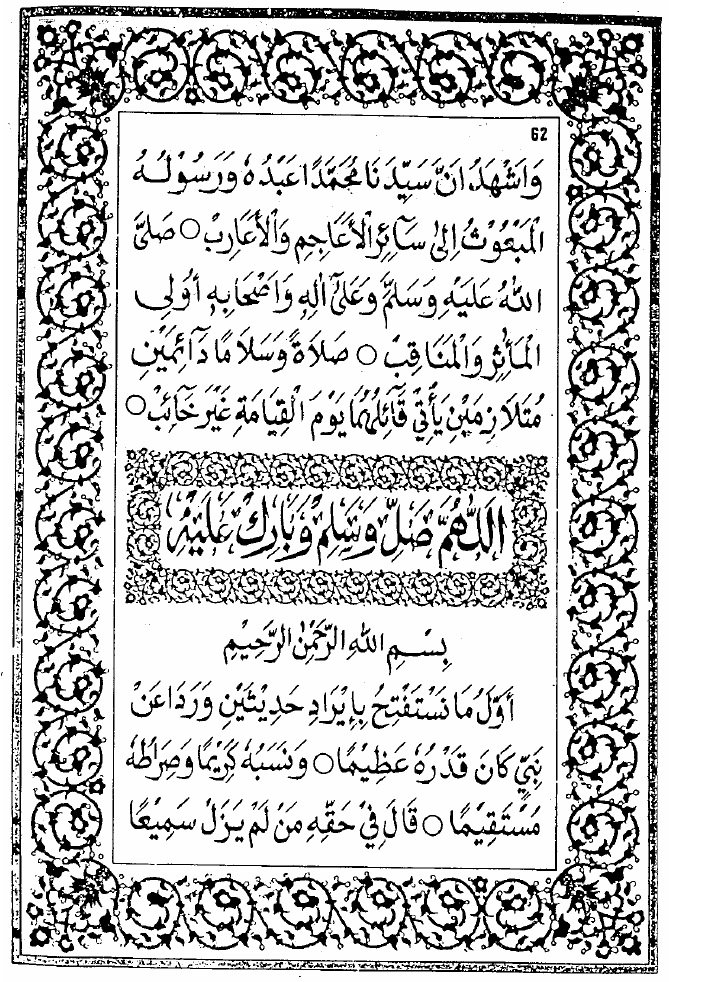 62
وَاَشْهَدُ اَنَّ سَيِّدَنَا مُحَمَّدًا عَبْدُهُ وَرَسُوْلُهُ
الْمَبْعُوْثُ اِلىٰ سَآئِرِ الْأَعَاجِمِ وَالْأَعَارِبْ ○ صَلىَّ
اللهُ عَلَيْهِ وَسَلَّمَ وَعَلىٰٓ اٰلِهِ وَاَصْحَابِهِ اُولِى
الْمَأٰثِرِ وَالْمَنَاقِبْ ○ صَلَاةً وَسَلَامًا دَآئِمَيْنِ
مُتَلَازِمَيْنِ يَأْتِيْ قَآئِلُهُمَا يَوْمَ الْقِيَامَةِ غَيْرَ خَآئِبْ ○
اَللّٰهُمَّ صَلِّ وَسَلِّمْ وَبَارِكْ عَلَيْهِ
بِسْمِ اللهِ الرَّحْمٰنِ الرَّحِيْمِ
أَوَّلُ مَا نَسْتَفْتِحُ بِإِيْرَادِ حَدِيْثَيْنِ وَرَدَا عَنْ
نَبِيٍّ كَانَ قَدْرُهُ عَظِيْمًا ○ وَنَسَبُهُ كَرِيْمًا وَصِرَاطُهُ
مُسْتَقِيْمًا ○ قَالَ فِيْ حَقِّهِ مَنْ لَمْ يَزَلْ سَمِيْعًا